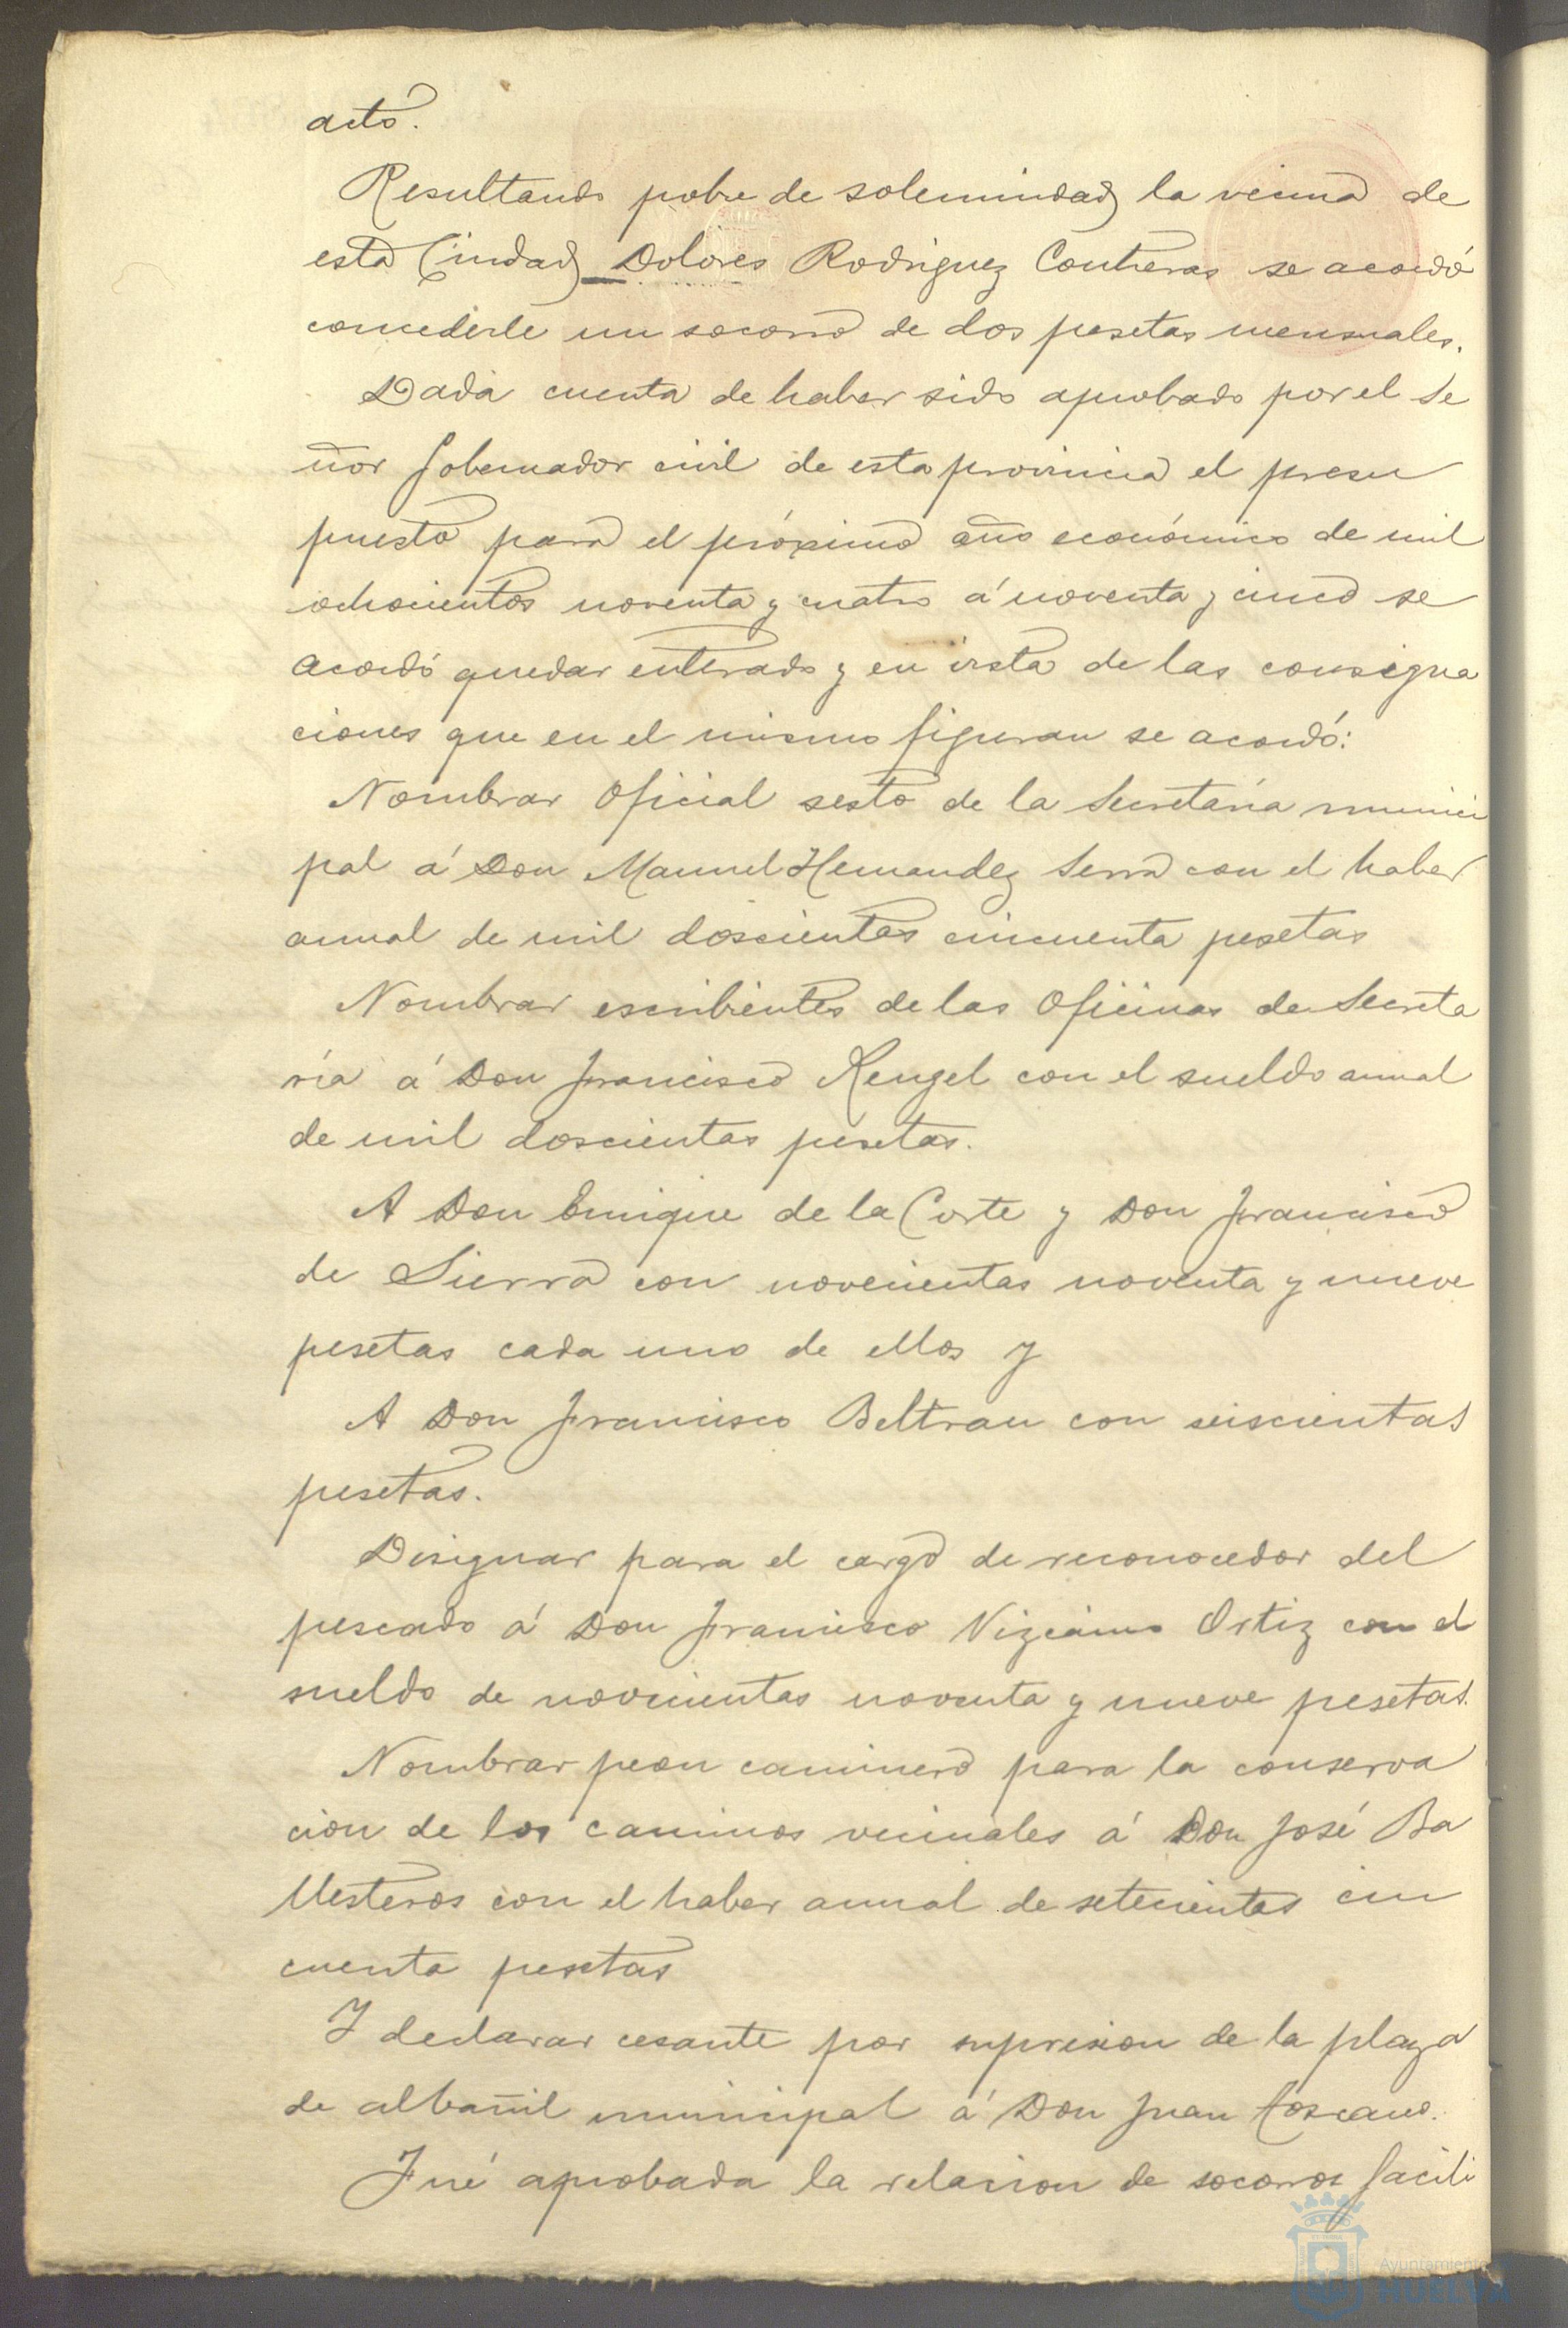 acto.
Resultando pobre de solemnidad la vecina de
esta Ciudad Dolores Rodriguez Contreras se acordó
concederle un socorro de dos pesetas mensuales.
Dada cuenta de haber sido aprobado por el Se
ñor Gobernador civil de esta provincia el presu
puesto para el próximo año económico de mil
ochocientos noventa y cuatro á noventa y cinco se
acordó quedar enterado y en vista de las consigna
ciones que en el mismo figuran se acordó:
Nombrar Oficial sesto de la Secretaría munici
pal á Don Manuel Hernandez Serra con el haber
anual de mil doscientas cincuenta pesetas
Nombrar escribientes de las Oficinas de Secreta
ría á Don Francisco Rengel con el sueldo anual
de mil doscientas pesetas.
A Don Enrique de la Corte y Don Francisco
de Sierra con novecientas noventa y nueve
pesetas cada uno de ellos y
A Don Francisco Beltran con seiscientas
pesetas.
Designar para el cargo de reconocedor del
pescado á Don Francisco Vizcaino Ortiz con el
sueldo de novecientas noventa y nueve pesetas.
Nombrar peon caminero para la conserva
cion de los caminos vecinales á Don José Ba
llesteros con el haber anual de setecientas cin
cuenta pesetas
Y declarar cesante por supresion de la plaza
de albañil municipal á Don Juan Toscano.
Fué aprobada la relacion de socorros facili
Ayuntamiento
HUELVA